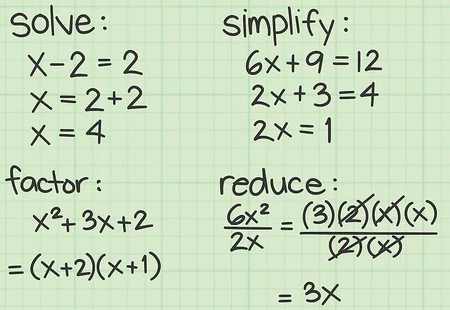 solve:
x-2 = 2
x = 2+2
x = 4
simplify:
6x + 9 = 12
2x + 3 = 4
2x = 1
factor:
x²+3x+2
=(x+2)(x+1)
reduce:
6x²/2x = (3)(2)(x)(x)/(2)(x)
= 3x